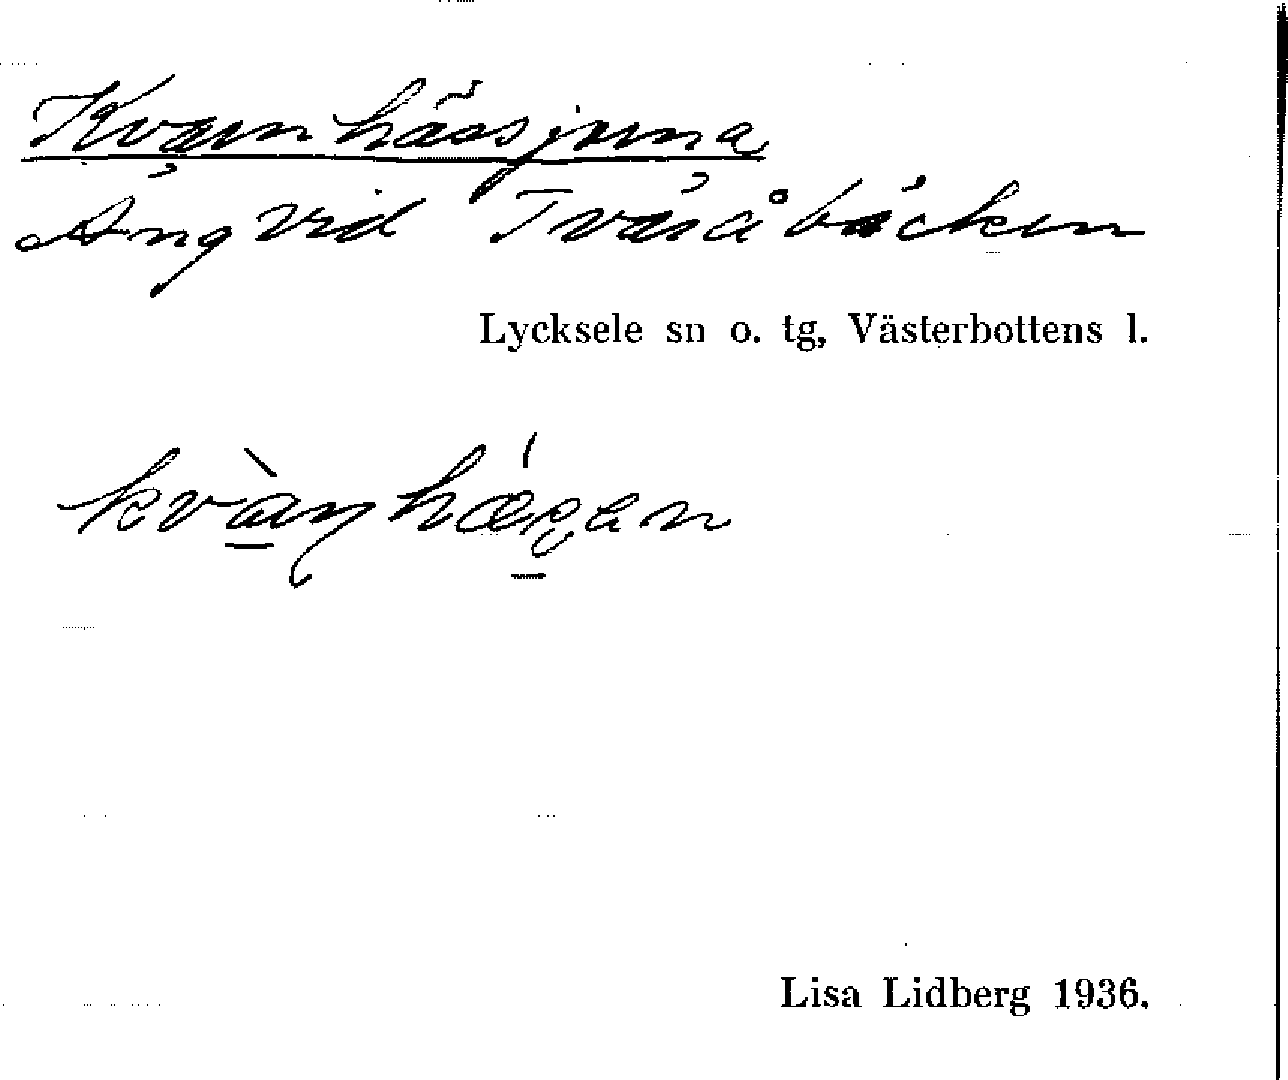 Kvarnhässjorna
Äng vid Tväråbäcken
Lycksele sn o. tg, Västerbottens l.
Lisa Lidberg 1936.